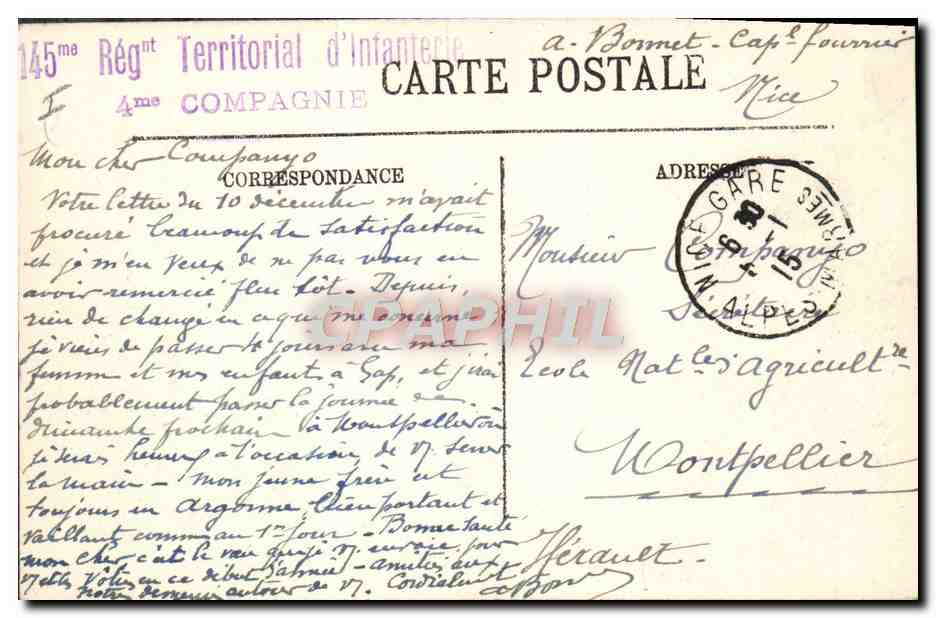 145me Régnt Territorial d'Infanterie
4me COMPAGNIE
I
a. Bonnet - Capl fourrier
Nice
CARTE POSTALE
CORRESPONDANCE
ADRESSE
Mon cher Companyo
Votre lettre du 10 décembre m'avait
procuré beaucoup de satisfaction
et je m'en veux de ne pas vous en
avoir remercié plus tôt - Depuis,
rien de changé en ce qui me concerne
je viens de passer 4 jours avec ma
femme et mes enfants à Gap, et j'irai
probablement passer la journée de
dimanche prochain à Montpellier où
je serais heureux à l'occasion de vs serrer
la main - mon jeune frère est
toujours en Argonne, bien portant et
vaillant comme au 1er jour - Bonne santé
mon cher, c'est le vœu que je vs envoie pour
vs et les vôtres en ce début d'année - amitiés aux
nôtres autour de vs. Cordialement
a Bon
Monsieur Companyo
Secrétaire
Ecole Natle d'Agricultre
Montpellier
Hérault -
NICE GARE
ALPES MARITMES
6 30
4 - 1
15
CPAPHIL